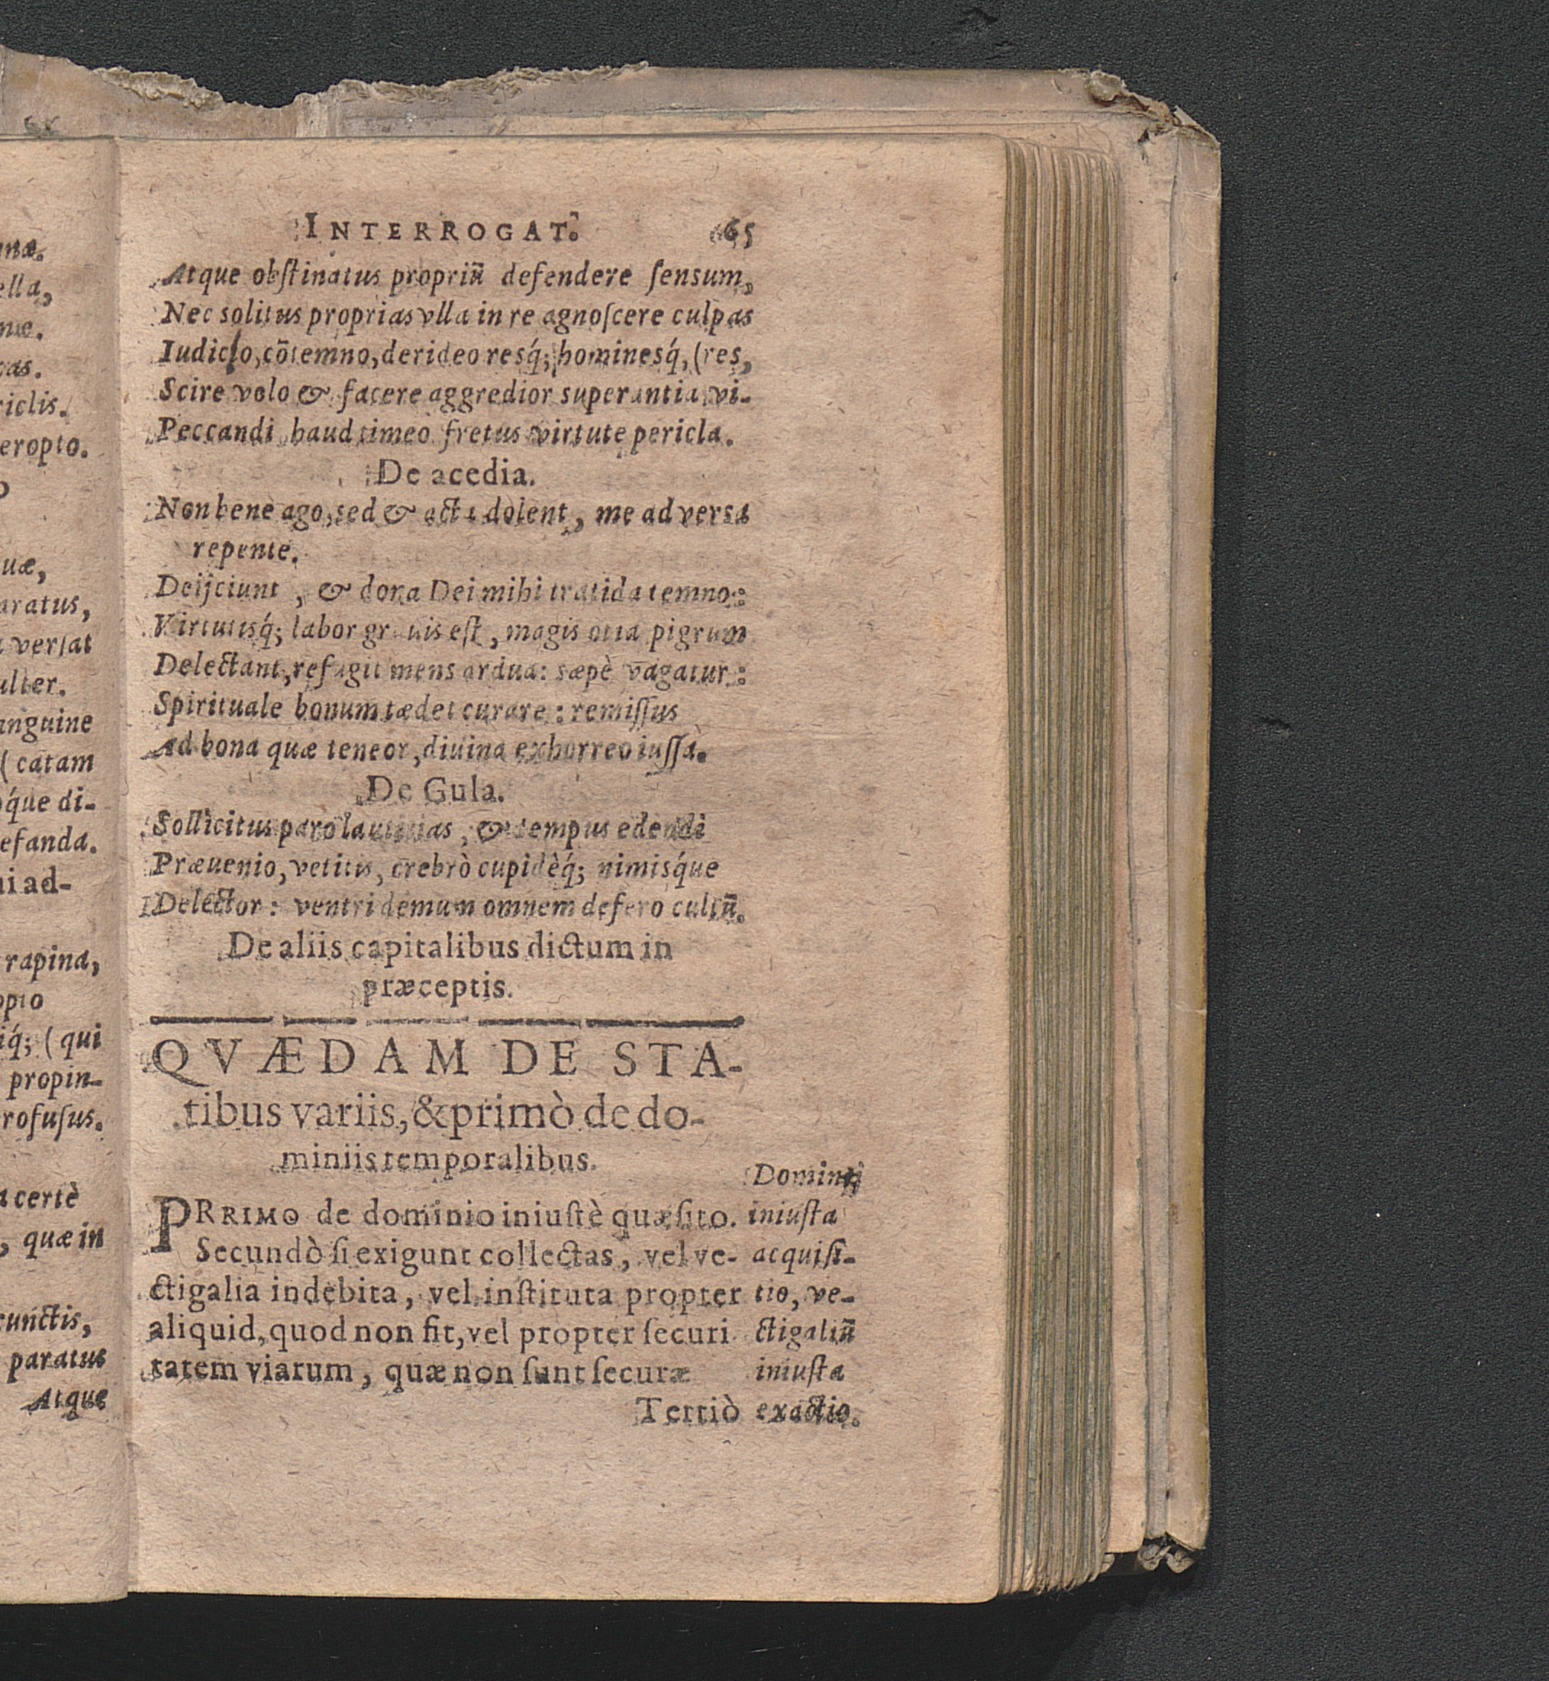 næ.
ella,
cas.
riclis.
eropto.
uæ,
aratus,
versat
ulter.
anguine
( catam
óque di-
efanda.
ui ad-
rapina,
opto
iq́; ( qui
propin-
rofusus.
certè
, quæ in
cunctis,
paratus
Atque
INTERROGAT. 65
Atque obſtinatus propriū defendere ſensum,
Nec solitus proprias vlla in re agnoſcere culpas
Iudicio, cōtemno, derideo resq́; hominesq́, (res,
Scire volo & facere aggredior superantia vi-
Peccandi haud timeo fretus virtute pericla.
De acedia.
Non bene ago, sed & acta dolent, me adversa
repente.
Deijciunt , & dona Dei mihi tradita temno:
Virtutisq́; labor grauis eſt, magis otia pigrum
Delectant, refugit mens ardua: sæpè vagatur:
Spirituale bonum tædet curare: remiſſus
Ad bona quæ teneor, diuina exhorreo iuſſa.
De Gula.
Sollicitus paro lautitias, & tempus edendi
Præuenio, vetitis, crebrò cupidèq́; nimisq́ue
Delector: ventri demum omnem defero cultū.
De aliis capitalibus dictum in
præceptis.
QVÆDAM DE STA-
tibus variis, & primò de do-
miniis temporalibus.
PRRIMO de dominio iniuſtè quæſito.
Secundò ſi exigunt collectas, vel ve-
ctigalia indebita, vel inſtituta propter
aliquid, quod non fit, vel propter ſecuri
tatem viarum, quæ non ſunt ſecuræ
Tertiò
Dominij
iniuſta
acquiſi-
tio, ve-
ctigaliū
iniuſta
exactio.